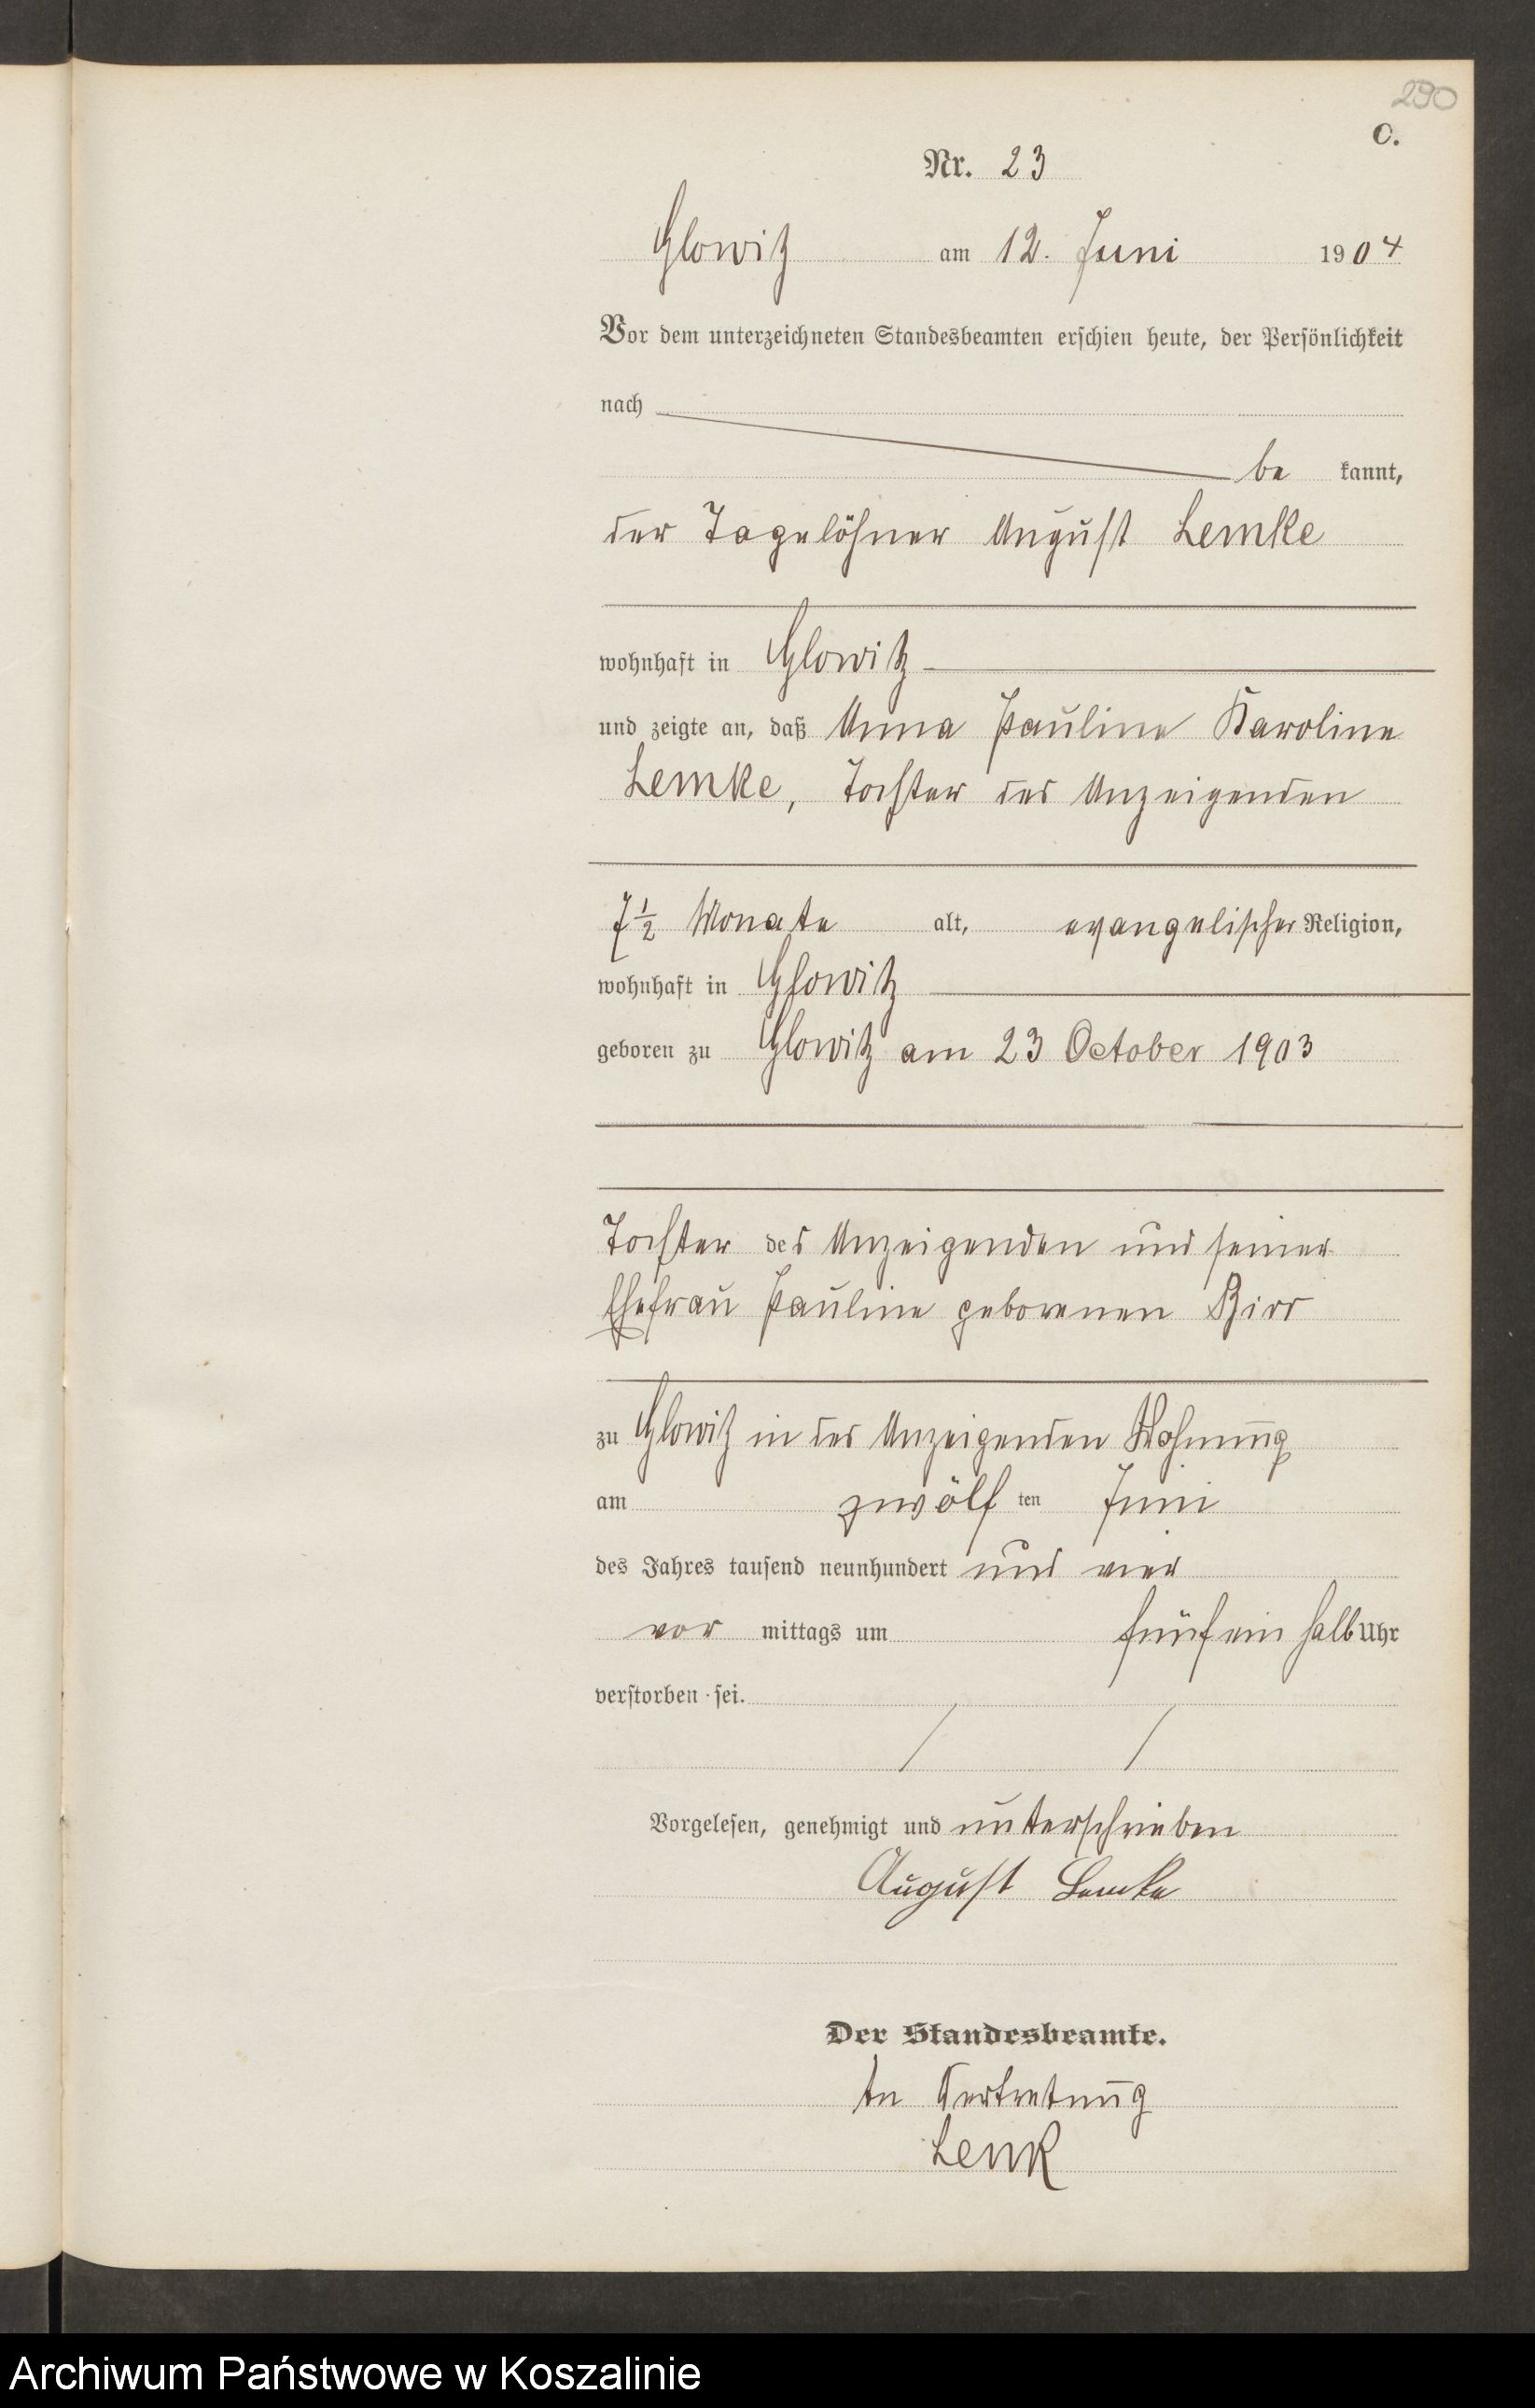 290
C.
Nr. 23
Glowitz am 12. Juni 1904
Vor dem unterzeichneten Standesbeamten erschien heute, der Persönlichkeit
nach
be kannt,
der Tagelöhner August Lemke
wohnhaft in Glowitz
und zeigte an, daß Anna Pauline Karoline
Lemke, Tochter des Anzeigenden
7 1/2 Monate alt, evangelischer Religion,
wohnhaft in Glowitz
geboren zu Glowitz am 23 October 1903
Tochter des Anzeigenden und seiner
Ehefrau Pauline geborenen Birr
zu Glowitz in des Anzeigenden Wohnung
am zwölf ten Juni
des Jahres tausend neunhundert und vier
vor mittags um fünf ein halb Uhr
verstorben sei.
Vorgelesen, genehmigt und unterschrieben
August Lemke
Der Standesbeamte.
In Vertretung
Lenk
Archiwum Państwowe w Koszalinie